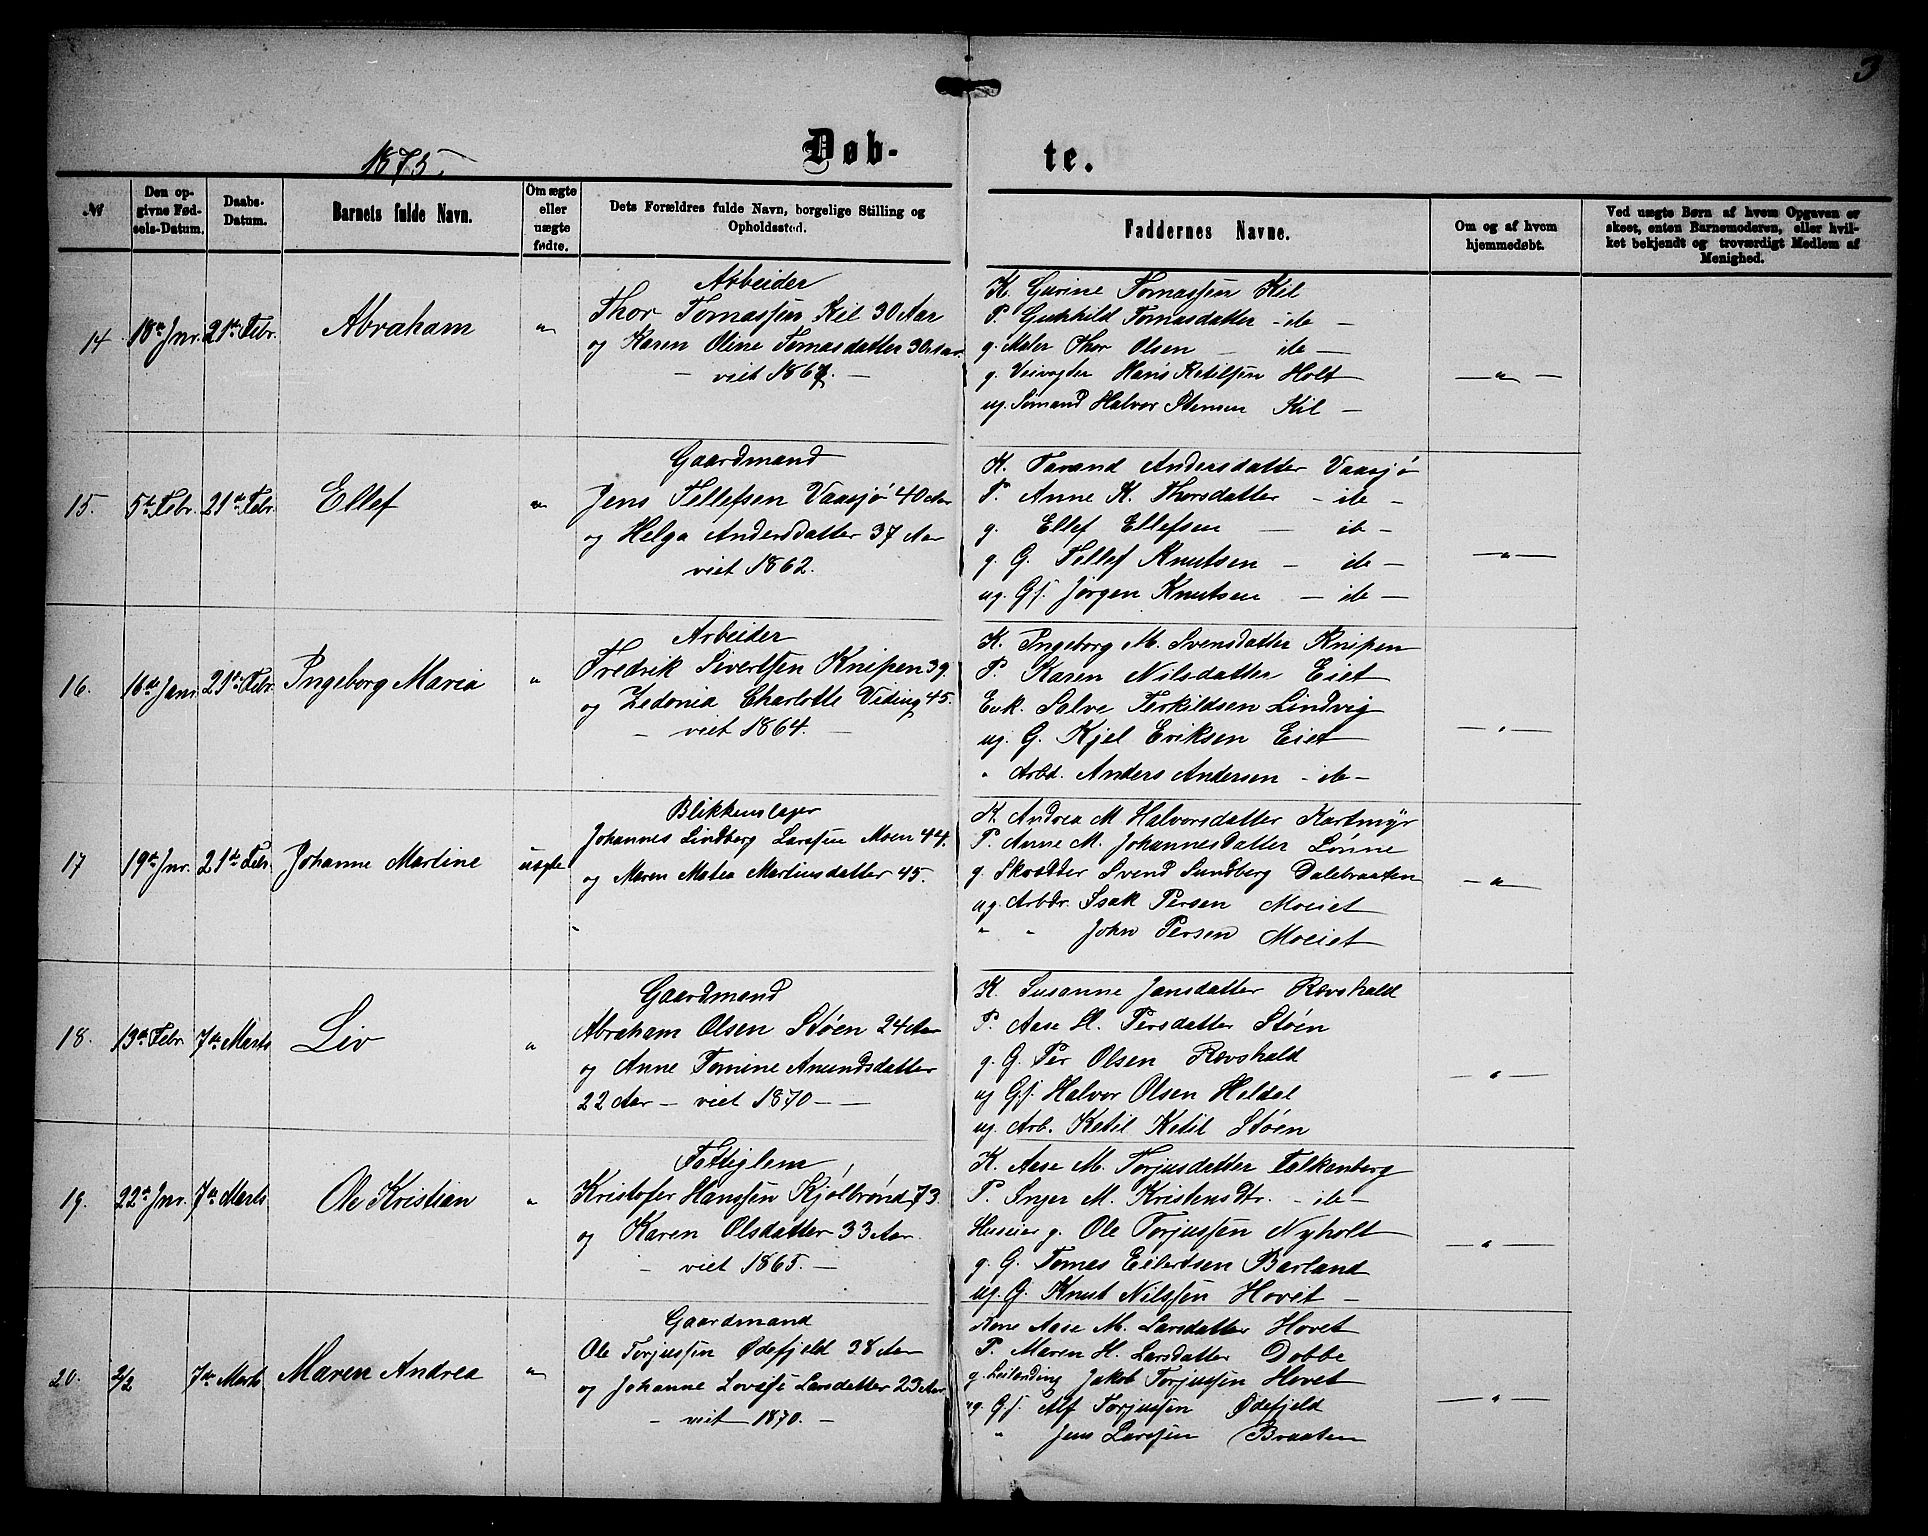 3
1875.
Døb-te.
№
Den opgivne Fødsels-Datum.
Daabs-Datum.
Barnets fulde Navn.
Om ægte eller uægte fødte.
Dets Forældres fulde Navn, borgelige Stilling og Opholdssted.
Faddernes Navne.
Om og af hvem hjemmedøbt.
Ved uægte Børn af hvem Opgaven er skeet, enten Barnemoderen, eller hvilket bekjendt og troværdigt Medlem af Menighed.
14 18de Jnr. 21de Febr. Abraham "
Arbeider
Thor Tomassen Kil 30 Aar
og Karen Oline Tomasdatter 30 Aar
– viet 1867. –
K. Gurine Tomassen Kil
P. Gunhild Tomasdatter – ib –
g. Maler Thor Olsen – ib –
g. Veivogter Hans Ketilsen Holt
ug. Sømand Halvor Stensen Kil –
— " —
15. 5te Febr. 21de Febr. Ellef "
Gaardmand
Jens Tellefsen Vaasjø 40 Aar
og Helga Andersdatter 37 Aar
viet 1862.
K. Tarand Andersdatter Vaasjø
P. Anne K. Thorsdatter – ib –
g. Ellef Ellefsen – ib –
g. G. Tellef Knutsen – ib –
ug. Gs. Jørgen Knutsen – ib –
— " —
16. 16de Janr. 21de Febr. Ingeborg Maria "
Arbeider
Fredrik Sivertsen Knipen 39.
og Zedonia Charlotte Veding 45.
– viet 1864. –
K. Ingeborg M. Svensdatter Knipen
P. Karen Nilsdatter Eiet
Enk. Salve Terkildsen Lindvig
ug. G. Kjel Eriksen Eiet
" Arbd. Anders Andersen – ib –
— " —
17 19de Jnr. 21de Febr. Johanne Martine uægte
Blikkenslager
Johannes Lindberg Larssen Moen 44.
og Maren Matea Martinsdatter 45.
K. Andrea M Halvorsdatter Kortmyr
P. Anne M. Johannesdatter Lønne
g. Skrædder Svend Sundberg Dalebraaten
ug. Arbdr. Isak Persen Moeiet
" " John Persen Moeiet
— " —
18. 13de Febr. 7de Marts Liv "
Gaardmand
Abraham Olsen Støen 24 Aar
og Anne Tomine Amundsdatter
22 Aar – viet 1870 – –
K. Susanne Jansdatter Rævshald
P. Aase H. Persdatter Støen
g. G. Per Olsen Rævshald
ug Gs. Halvor Olsen Heldal
ug. Arb. Ketil Ketil Støen
— " —
19. 22de Jnr. 7de Marts Ole Kristian "
Fattiglem
Kristofer Hanssen Kjølbrønd 73.
og Karen Olsdatter 33 Aar.
– viet 1865. –
K. Aase M. Torjusdatter Falkenberg
P. Inger M. Kristensdtr. – ib –
Huseier g. Ole Torjussen Nyholt
g. G. Tomas Eilertsen Barland
ug. G. Knut Nilssen Hovet –
— " —
20. 2/2 7de Marts Maren Andrea "
Gaardmand
Ole Torjussen Ødefjeld 38 Aar
og Johanne Lovise Larsdatter 23 Aar
– viet 1870. –
Kone Aase M. Larsdatter Hovet
P. Maren H. Larsdatter Dobbe
g. Leilænding Jakob Torjussen Hovet
ug. Gs. Alf Torjussen Ødefjeld
" Jens Larssen Braaten
— " —